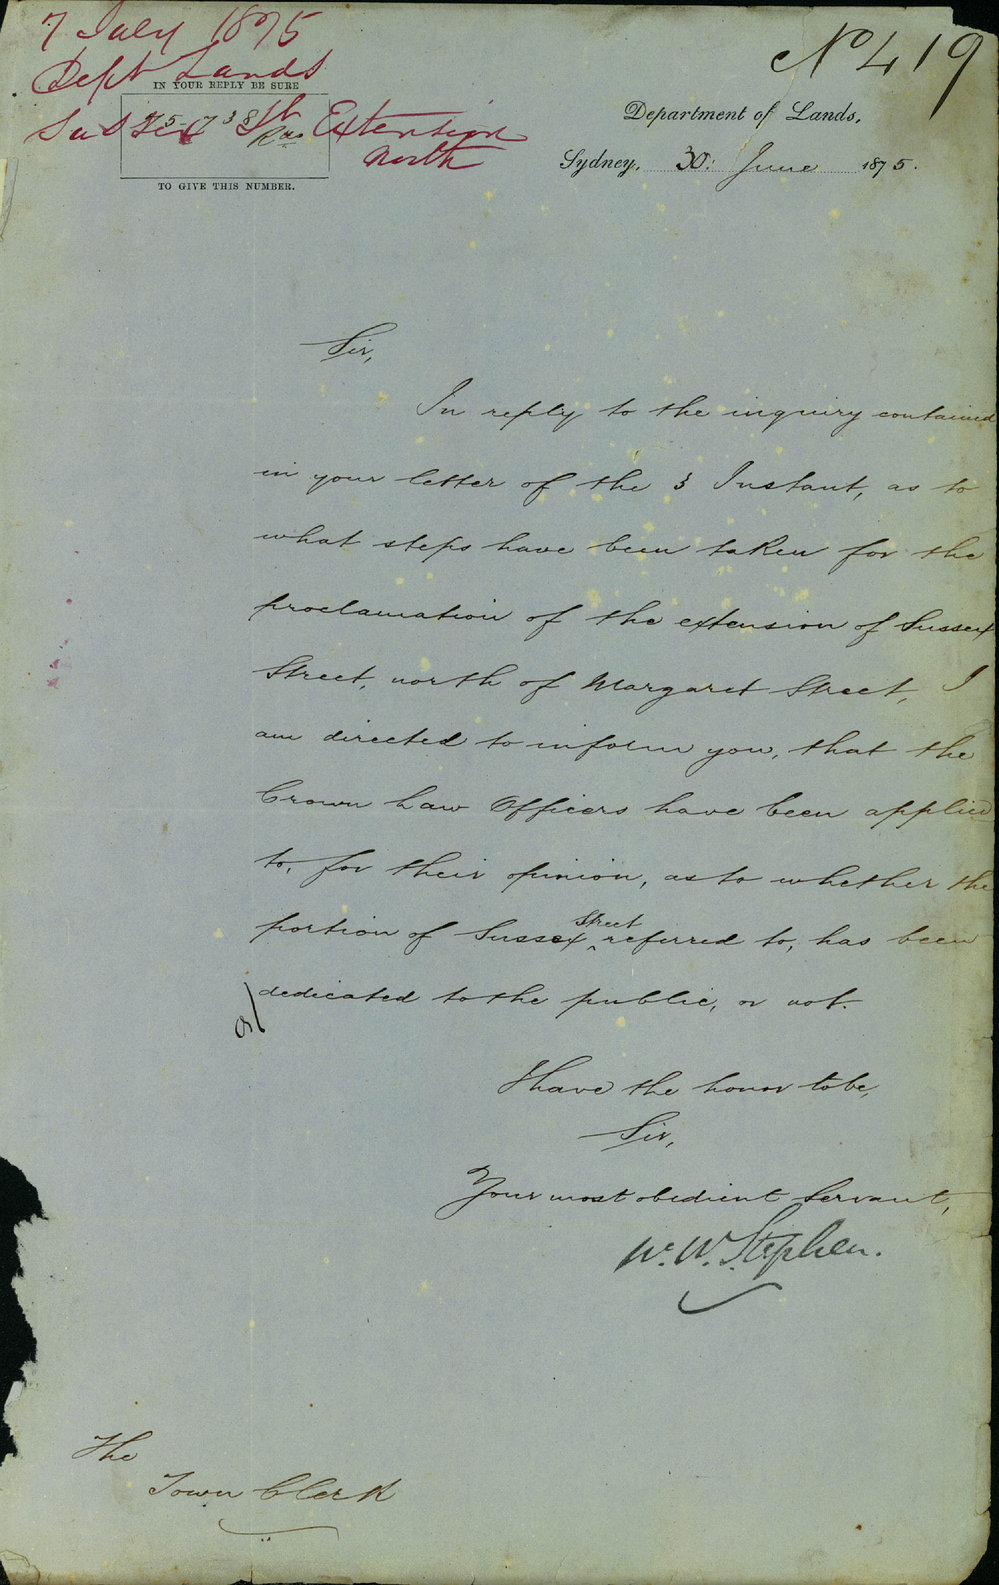 7 July 1875
Dept Lands
IN YOUR REPLY BE SURE
75-738
Rds
Sussex St Extention
North
TO GIVE THIS NUMBER.
No 419
Department of Lands,
Sydney, 30: June 1875.
Sir,
In reply to the inquiry contained
in your letter of the 3 Instant, as to
what steps have been taken for the
proclamation of the extension of Sussex
Street, north of Margaret Street, I
am directed to inform you, that the
Crown Law Officers have been applied
to, for their opinion, as to whether the
portion of Sussex ^Street referred to, has been
dedicated to the public, or not.
I have the honor to be,
Sir,
Your most obedient Servant,
W. W. Stephen.
The
Town Clerk